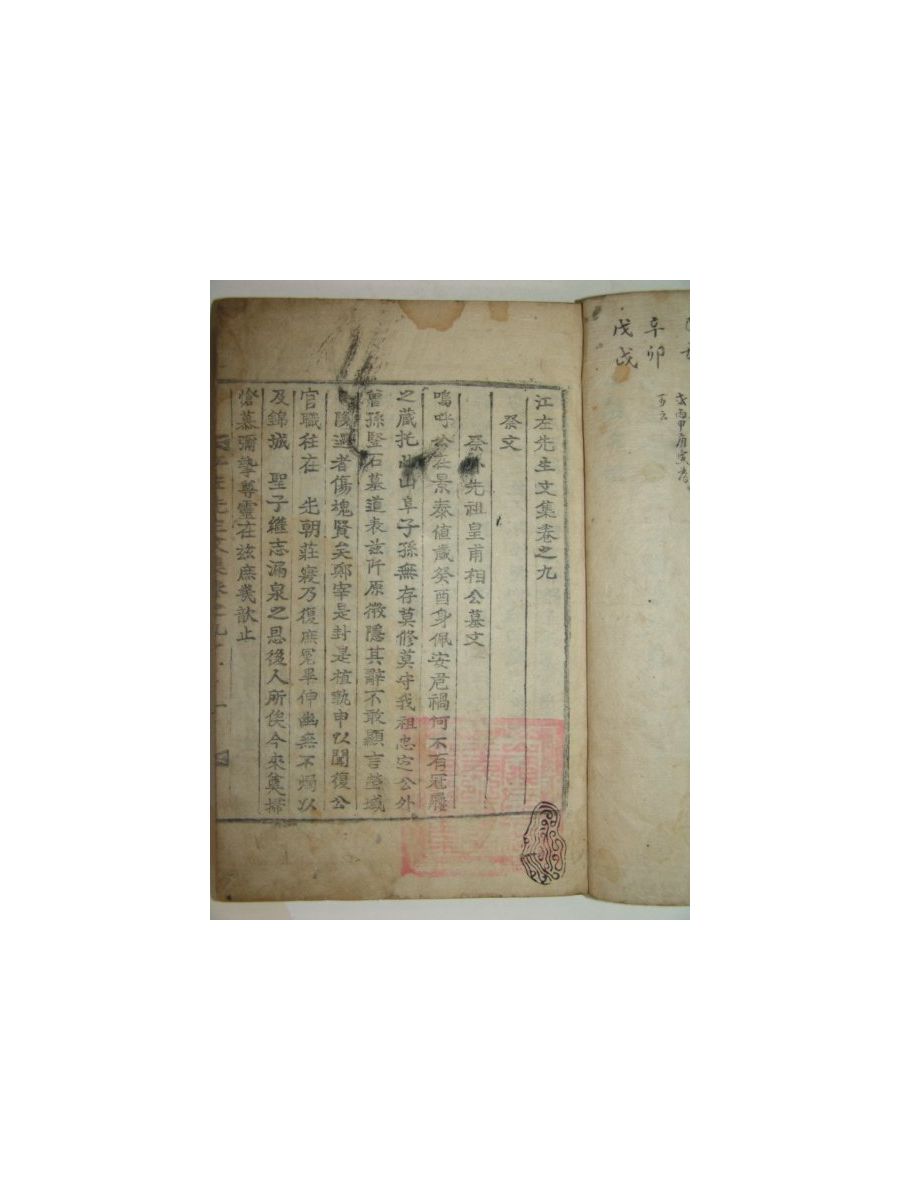 戊戌
辛卯
江左先生文集卷之九
祭文
祭外先祖皇甫相公墓文
嗚呼公在景泰値歲癸酉身佩安危禍何不有冠屨
之藏托此山阜子孫無存莫修莫守我祖忠定公外
曾孫竪石墓道表玆阡原微隱其辭不敢顯言塋域
陵過者傷塊賢矣鄭宰是封是植乃申以聞復公
官職往在 先朝莊寢乃復庶寃畢伸幽無不燭以
及錦城 聖子繼志漏泉之恩後人所俟今來奠掃
愴慕彌摯尊靈在玆庶羲歆止